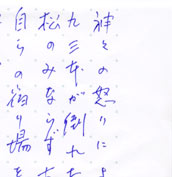 神々の怒りに
九三本が倒れ
松のみならず
自らの宿り場を